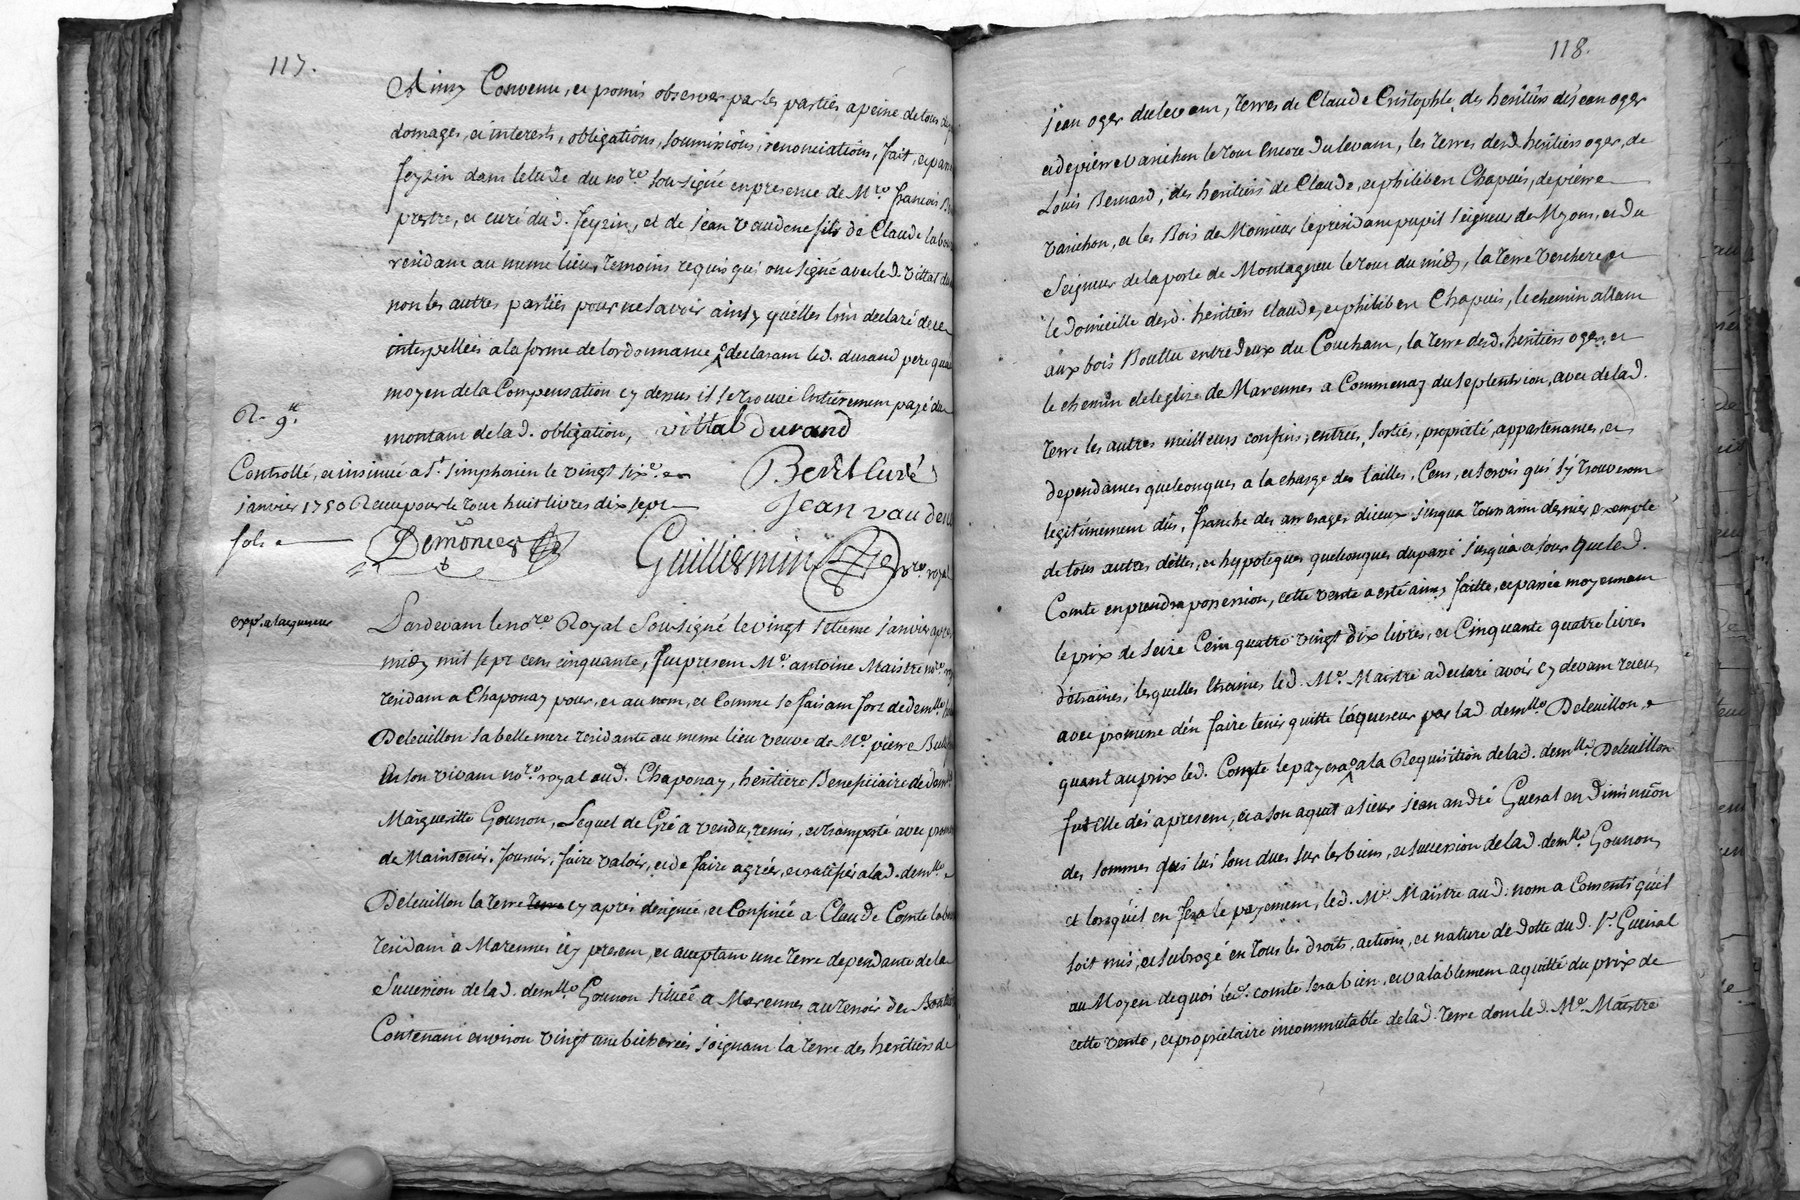 117.
Ainsy Convenu, et promis observer par les partiës a peine de tous
domages, et interests, obligations, soumissions, renonciations, fait, et passé
feyzin dans letude du no.re sousigné en presence de M.re francois
prestre, et curé du d. feyzin, et de jean vaudene fils de Claude
residant au meme lieu, temoins requis qui ont signé avec led. vittal
non les autres partiës pour ne savoir ainsy quélles lont declaré de ce
interpellëes a la forme de lordonnance declarant led. durand pere
moyen de la Compensation cy dessus il se trouve Entierement payé du
montant de la d. obligation, vittal durand
R. 9.tt
Controllé, et insinué a S.t simphorien le vingt six.e
janvier 1750 Receu pour le tout huit livres dix sept
sols
Benit Curé
jean vaudene
Demonces
Guilliermin no.re royal
exp. a lacquereur
Pardevant le no.re Royal Sousigné le vingt janvier apres
midy mil sept cens cinquante, fut present M.e antoine Maistre no.re
residant a Chaponay pour, et au nom, et Comme se faisant fort de dem.lle
Deleuillon sa belle mere residante au meme lieu veuve de M.e pierre
En son vivant no.re royal aud. Chaponay, heritiere Beneficiaire de
Margueritte Gounon, Lequel de Gré a vendu, remis, et transporté avec
de Maintenir, fournir, faire valoir, et de faire agréer, et ratifier a lad. dem.lle
Deleuillon la terre terre cy aprés designëe, et Confinëe a Claude Comte
residant à Marennes icy present, et acceptant une terre dependante de la
Succession de lad. dem.lle Gounon situëe a Marennes au terroir de
Contenant environ vingt une bicherëes joignant la terre des heritiers de
118.
jean oger du levant, terres de Claude Cristophle, des heritiers de jean oger
et de pierre varichon le tour Encore du levant, les terres desd. heritiers oger, de
Louis Bernard, des heritiers de Claude, et philibert Chapuis, de pierre
varichon, et les Bois de Monsieur le president pupil seigneur de Myons, et du
seigneur de la porte de Montagneu le tout du midy, la terre verchere et
le domicille desd. heritiers claude, et philibert Chapuis, le chemin allant
aux bois Boullu entre deux du Couchant, la terre desd. heritiers oger, et
le chemin de leglise de Marennes a Commenay du septentrion, avec de lad.
terre les autres meilleurs confins, entrëes, sorties, proprieté, appartenances, et
dependances quelconques a la charge des tailles, Cens, et servis qui s'y trouveront
legitimement dûs, franche des arrerages diceux jusqua toussaint dernier exempte
de tous autres dëttes, et hypoteques quelconques du passé jusqua ce jour que led.
Comte en prendra possession, cette vente a esté ainsy faitte, et passëe moyennant
le prix de seize Cent quatre vingt dix livres, et Cinquante quatre livres
d'étraines, lesquelles Etraines led. M.e Maistre a declaré avoir cy devant receu
avec promesse dén faire tenir quitte l'aquereur par lad. dem.lle Deleuillon, et
quant au prix led. Comte le payera a la Requisition de lad. dem.lle Deleuillon
fut Elle dés apresent, et a son aquit a sieur jean andré Guerat en diminuõn
des sommes qui lui sont dues sur les biens, et succession de lad. dem.lle Gounon,
et lorsquil en fera le payement, led. M.e Maistre aud. nom a Consenti quil
soit mis, et subrogé en tous les droits, actions, et nature de dette du d. S.r Guerat
au Moyen de quoi led. comte sera bien, et valablement aquitté du prix de
cette vente, et proprietaire incommutable de lad. terre dont led. M.e Maistre